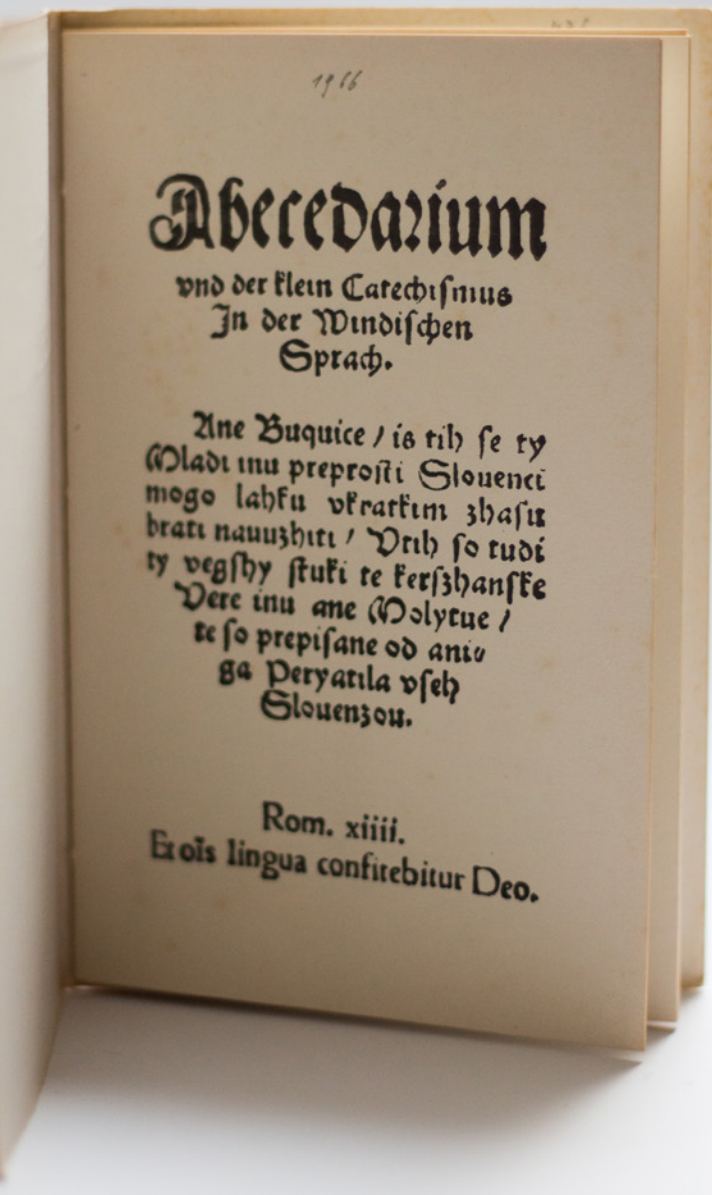 1966
Abecedarium
vnd der klein Catechismus
In der Windischen
Sprach.
Ane Buquice / is tih se ty
Mladi inu preprosti Slouenci
mogo lahku vkratkim zhasu
brati nauuzhiti / Vtih so tudi
ty vegshy stuki te kerszhanske
Vere inu ane Molytue /
te so prepisane od aniga
Peryatila vseh
Slouenzou.
Rom. xiiii.
Et oĩs lingua confitebitur Deo.